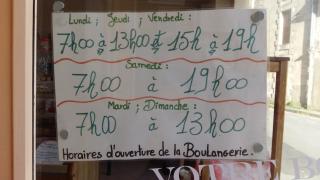 Lundi ; Jeudi ; Vendredi :
7h00 à 13h00 et 15h à 19h
Samedi :
7h00 à 19h00
Mardi ; Dimanche :
7h00 à 13h00
Horaires d'ouverture de la Boulangerie.
VOTRE BO